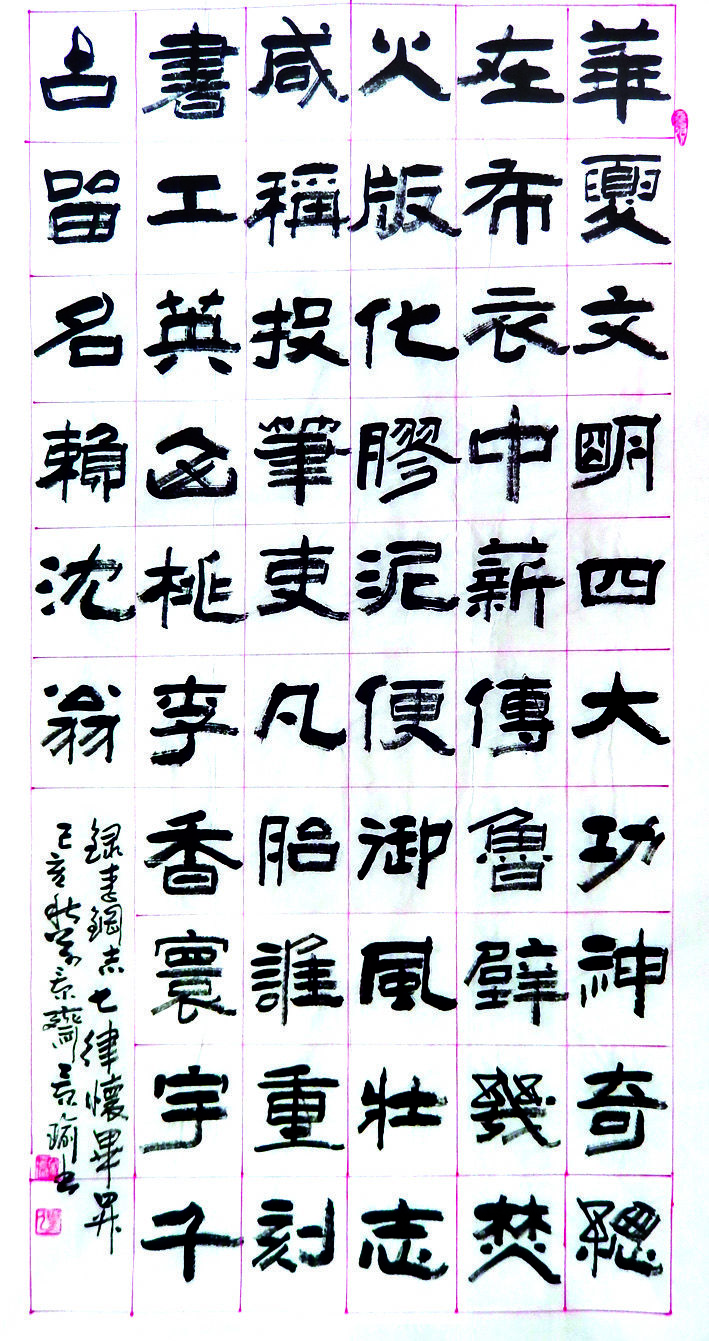 華夏文明四大功神奇總
在布衣中薪傳魯壁幾焚
火版化膠泥便御風壯志
咸稱投筆吏凡胎誰重刻
書工英山桃李香寰宇千
古留名賴沈翁
錄鋼志七律懷畢昇
己亥秋景齋景瑜書